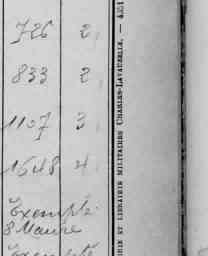 726 2
833 2
1107 3
1648 4
Exempté
8 Maure
Exempté
RIE ET LIBRAIRIE MILITAIRES CHARLES-LAVAUZELLE. — 4351